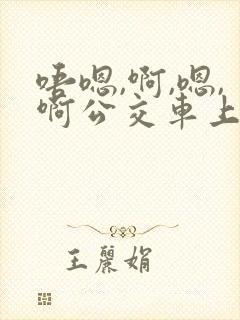 唔嗯,啊,嗯,
啊公交車上
王麗娟